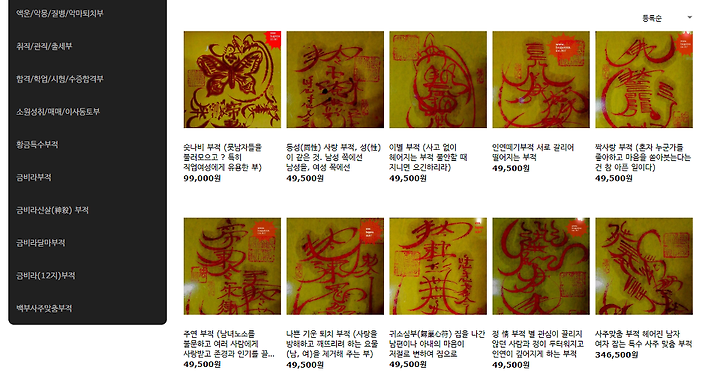 액운/악몽/질병/악마퇴치부
취직/관직/출세부
합격/학업/시험/수증합격부
소원성취/매매/이사동토부
황금특수부적
금비라부적
금비라신살(神殺) 부적
금비라달마부적
금비라(12지)부적
백부사주맞춤부적
등록순
숫나비 부적 (뭇남자들을
불러모으고 ? 특히
직업여성에게 유용한 부)
99,000원
동성(同性) 사랑 부적, 성(性)
이 같은 것. 남성 쪽에선
남성을, 여성 쪽에선
49,500원
이별 부적 (사고 없이
헤어지는 부적 불안할 때
지니면 요긴하리라)
49,500원
인연떼기부적 서로 갈리어
떨어지는 부적
49,500원
짝사랑 부적 (혼자 누군가를
좋아하고 마음을 쏟아붓는다는
건 참 아픈 일이다)
49,500원
주연 부적 (남녀노소를
불문하고 여러 사람에게
사랑받고 존경과 인기를 끌...
49,500원
나쁜 기운 퇴치 부적 (사랑을
방해하고 깨뜨리려 하는 요물
(남, 여)을 제거해 주는 부)
49,500원
귀소심부(歸巢心符) 집을 나간
남편이나 아내의 마음이
저절로 변하여 집으로
49,500원
정 情 부적 별 관심이 끌리지
않던 사람과 정이 두터워지고
인연이 깊어지게 하는 부적
49,500원
사주맞춤 부적 헤어진 남자
여자 잡는 특수 사주 맞춤 부적
346,500원